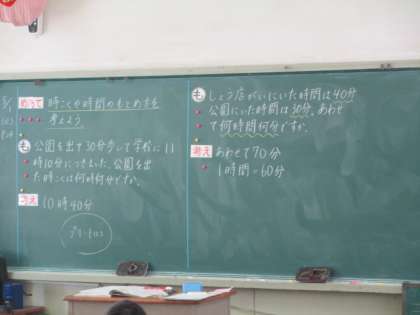 めあて 時こくや時間のもとめ方を
考えよう
も 公園を出て30分歩いて学校に11
時10分につきました。公園を出
た時こくは何時何分ですか。
考え 10時40分
も しょう店がいにいた時間は40分
公園にいた時間は30分。あわせ
て何時間何分ですか。
考え あわせて70分
1時間=60分